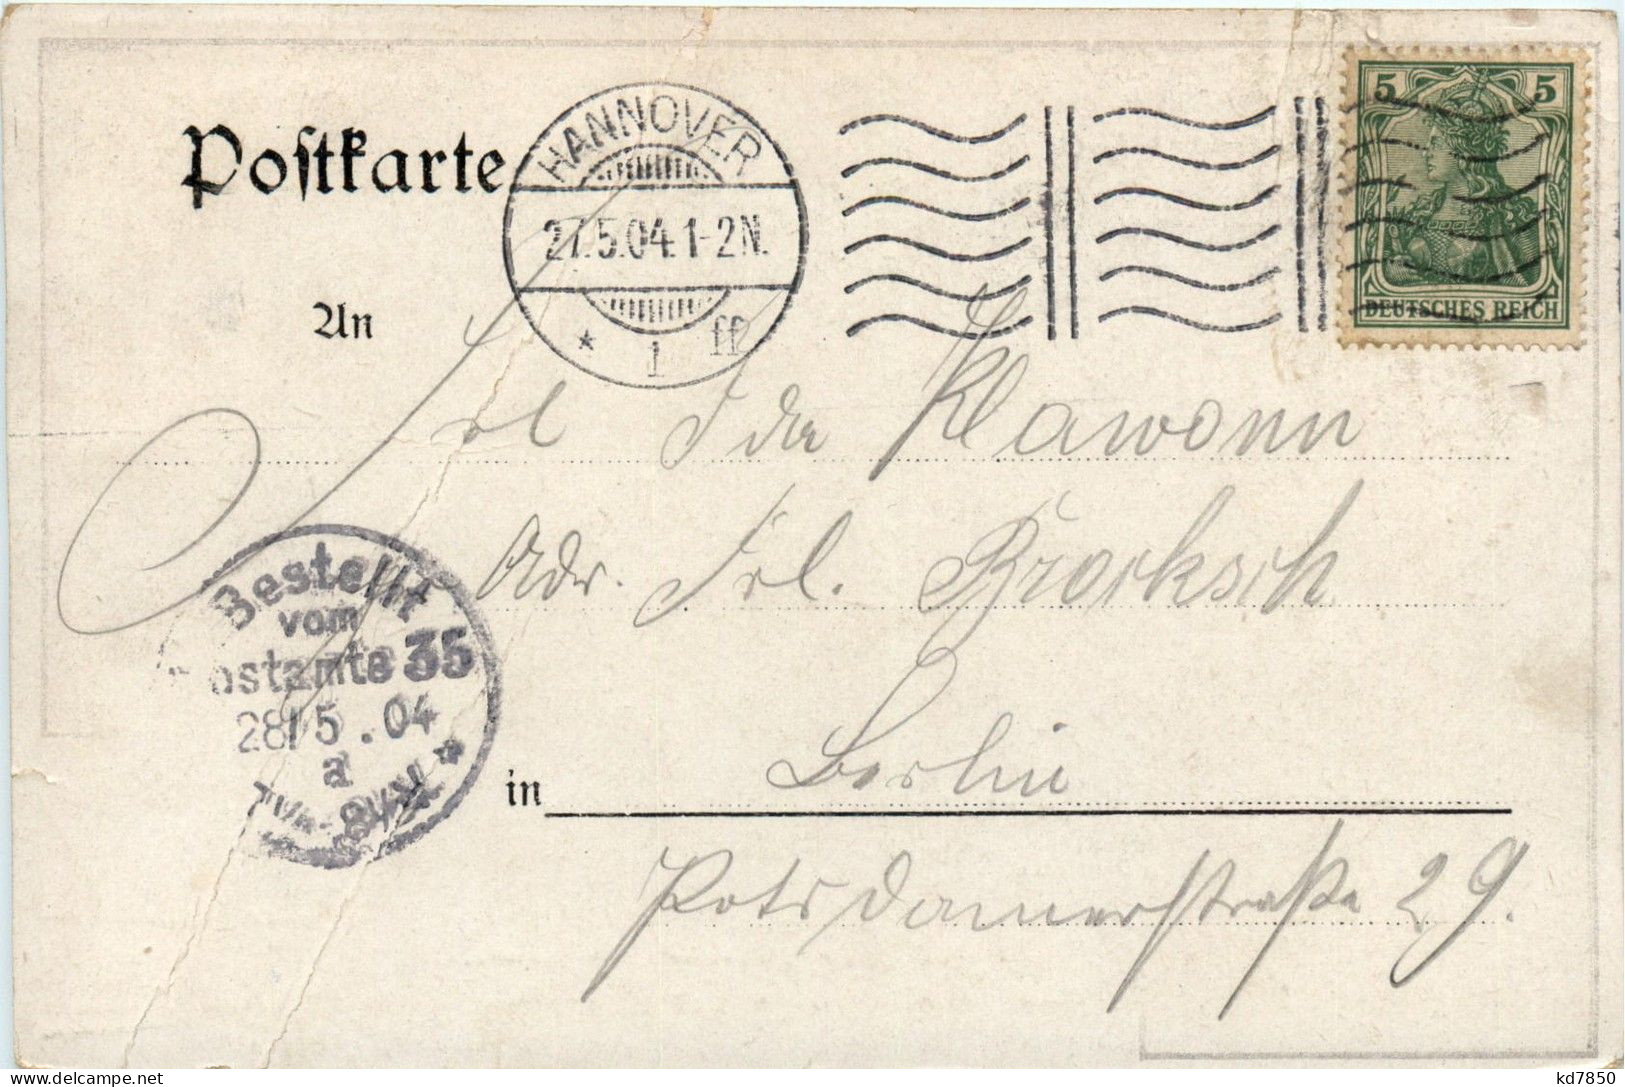 Postkarte
HANNOVER
27.5.04.1-2N.
* 1 ff
5 5
DEUTSCHES REICH
An
Frl Ida Klawonn
Adr. Frl. Brocksch
Bestellt
vom
Postamte 35
28/5.04
a
in Berlin
Potsdamerstraße 29.
kd7850